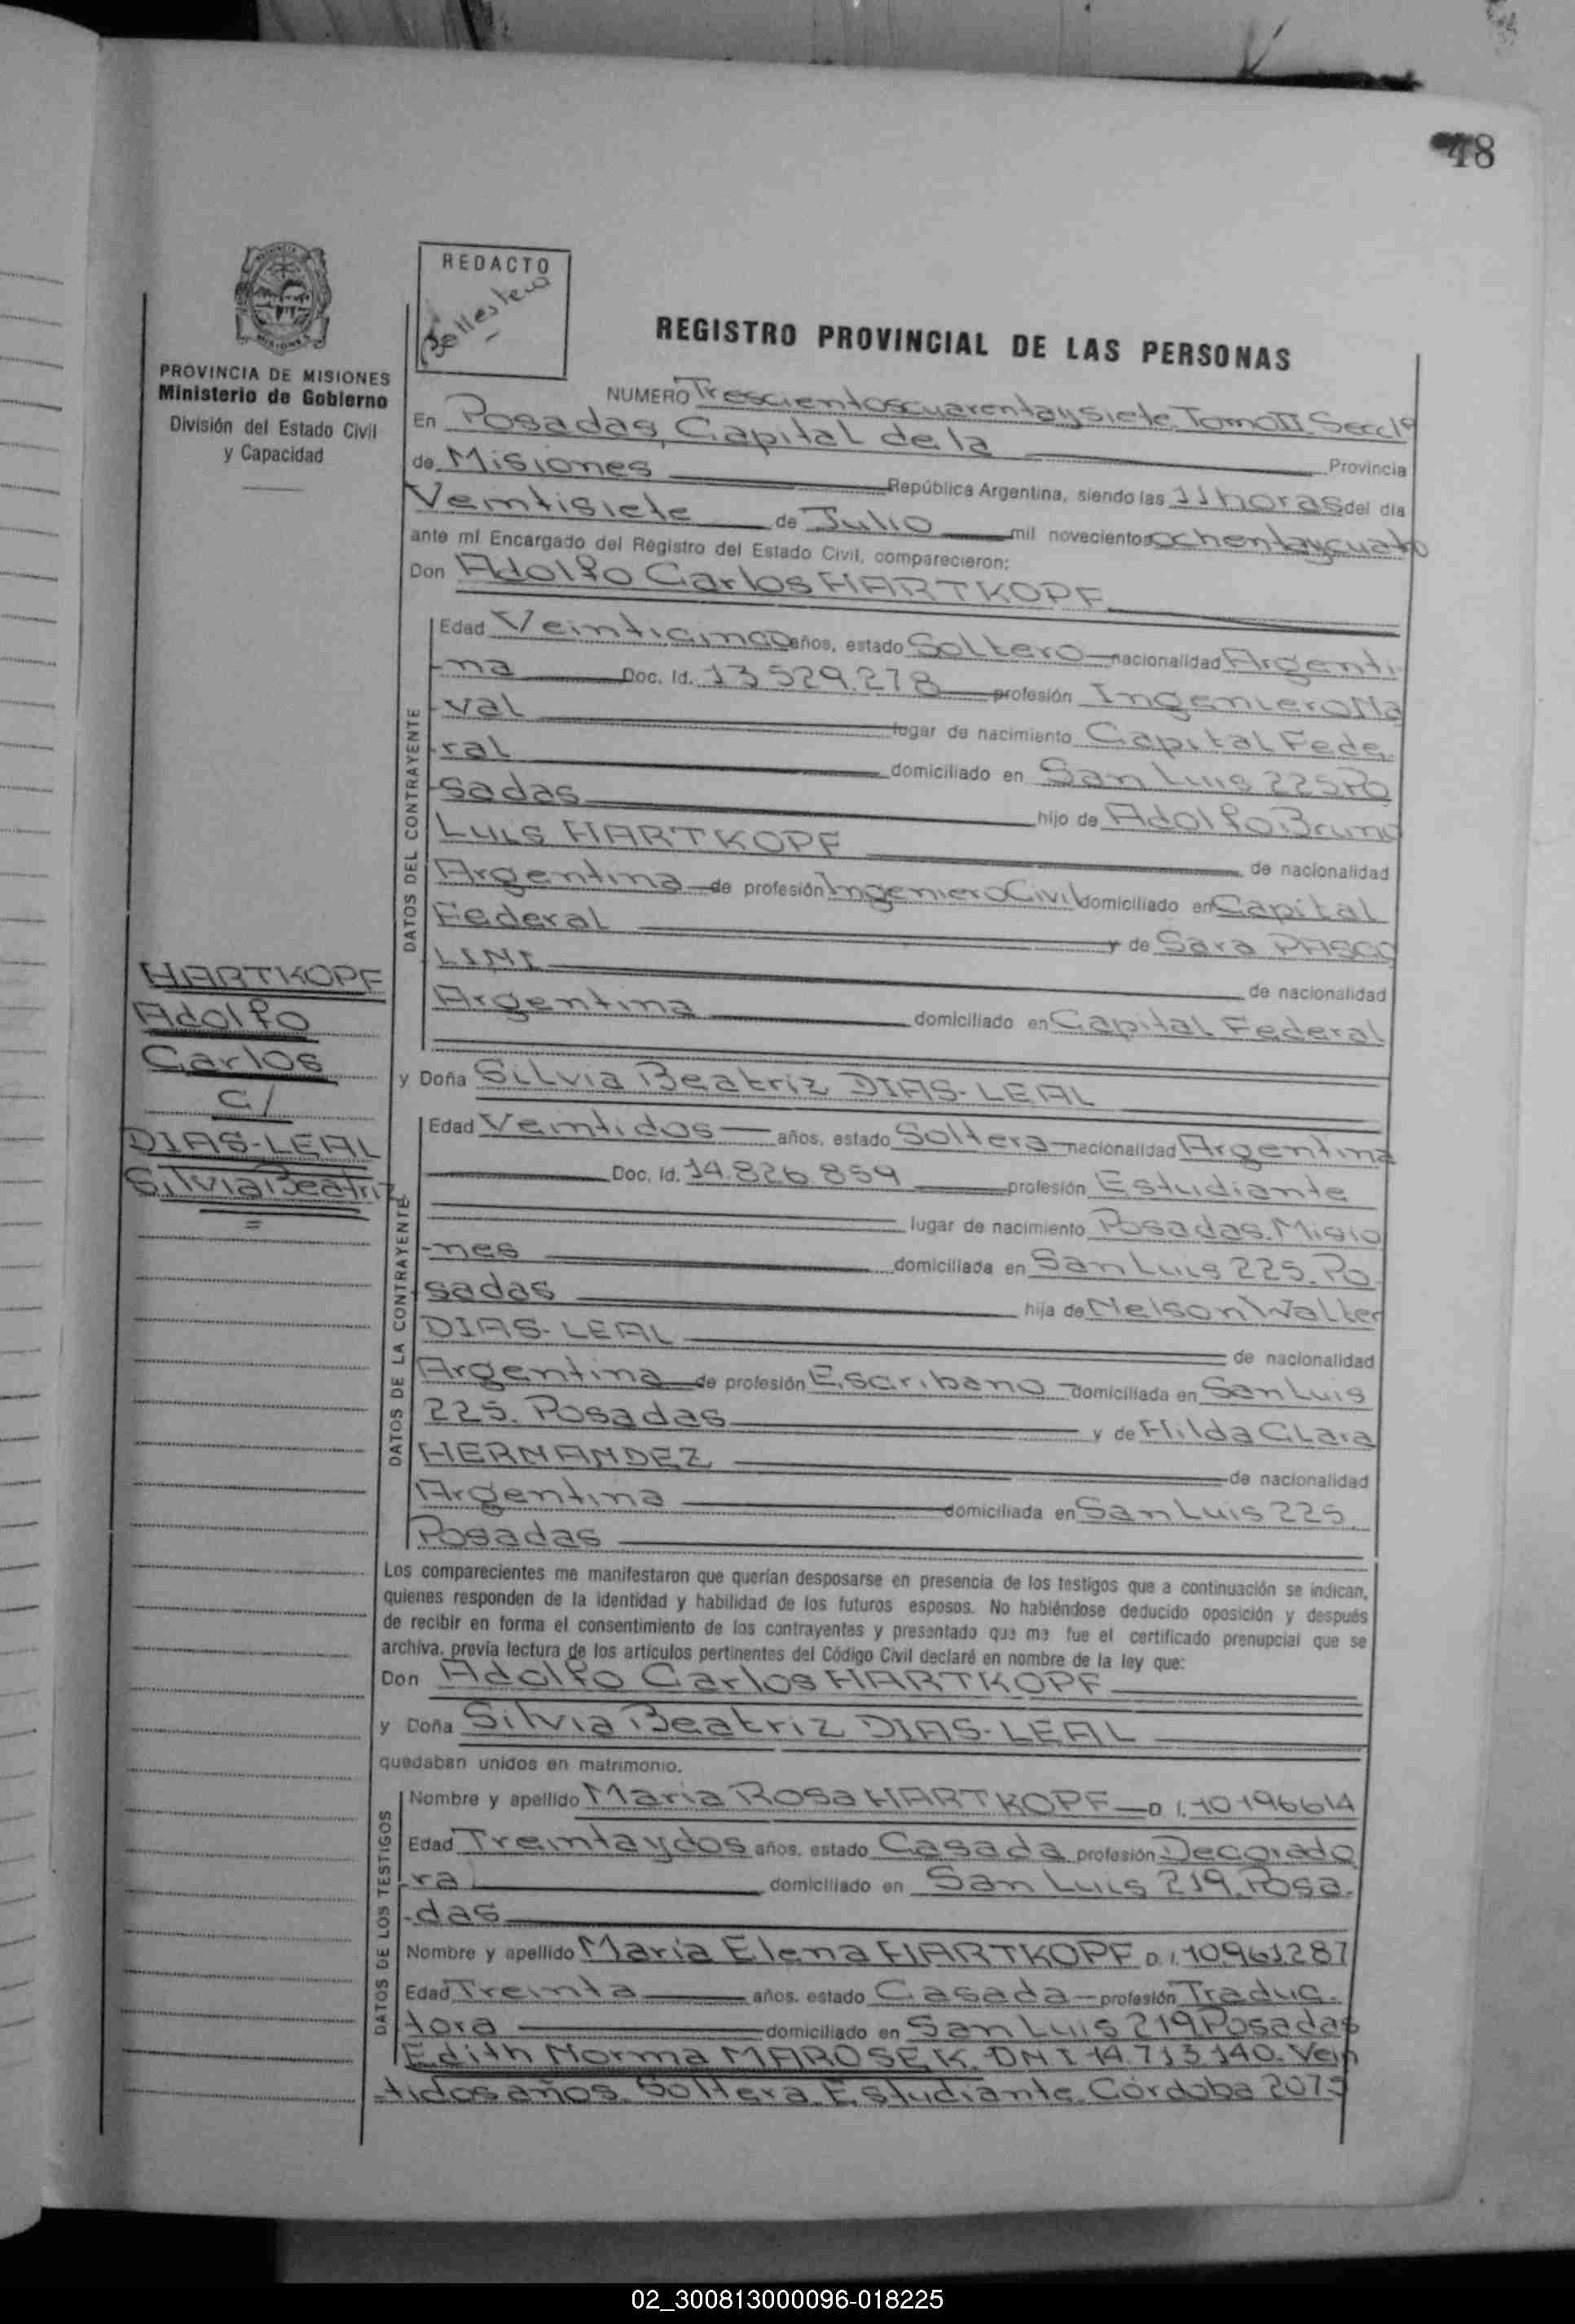 48
REDACTO
Ballestero
REGISTRO PROVINCIAL DE LAS PERSONAS
PROVINCIA DE MISIONES
Ministerio de Gobierno
División del Estado Civil
y Capacidad
NUMERO Trescientoscuarentaysiete. TomoII. Secc1ª
En Posadas, Capital de la Provincia
de Misiones República Argentina, siendo las 11horas del día
Veintisiete de Julio mil novecientos ochentaycuatro
ante mí Encargado del Registro del Estado Civil, comparecieron:
Don Adolfo Carlos HARTKOPF
DATOS DEL CONTRAYENTE
Edad Veinticinco años, estado Soltero nacionalidad Argenti
-na Doc. Id. 13.529.278 profesión IngenieroNa
-val lugar de nacimiento Capital Fede
-ral domiciliado en San Luis 225 Po
-sadas hijo de Adolfo Bruno
Luis HARTKOPF de nacionalidad
Argentina de profesión IngenieroCivil domiciliado en Capital
Federal y de Sara PASCO
LINI de nacionalidad
Argentina domiciliado en Capital Federal
HARTKOPF
Adolfo
Carlos
C/
DIAS-LEAL
Silvia Beatriz
=
y Doña Silvia Beatriz DIAS-LEAL
DATOS DE LA CONTRAYENTE
Edad Veintidos años, estado Soltera nacionalidad Argentina
Doc. Id. 14.826.859 profesión Estudiante
lugar de nacimiento Posadas. Misio
-nes domiciliada en San Luis 225. Po
sadas hija de Nelson Walter
DIAS-LEAL de nacionalidad
Argentina de profesión Escribano domiciliada en San Luis
225. Posadas y de Hilda Clara
HERNANDEZ de nacionalidad
Argentina domiciliada en San Luis 225
Posadas
Los comparecientes me manifestaron que querían desposarse en presencia de los testigos que a continuación se indican,
quienes responden de la identidad y habilidad de los futuros esposos. No habiéndose deducido oposición y después
de recibir en forma el consentimiento de los contrayentes y presentado que me fue el certificado prenupcial que se
archiva, previa lectura de los artículos pertinentes del Código Civil declaré en nombre de la ley que:
Don Adolfo Carlos HARTKOPF
y Doña Silvia Beatriz DIAS-LEAL
quedaban unidos en matrimonio.
DATOS DE LOS TESTIGOS
Nombre y apellido Maria Rosa HARTKOPF D.I. 10196614
Edad Treintaydos años, estado Casada profesión Decorado
-ra domiciliado en San Luis 219. Posa.
-das
Nombre y apellido Maria Elena HARTKOPF D.I. 10.961.287
Edad Treinta años, estado Casada profesión Traduc.
tora domiciliado en San Luis 219 Posadas
Edith Norma MAROSEK. DNI 14.713.140. Vein
-tidos años. Soltera. Estudiante. Córdoba 2075
02_300813000096-018225